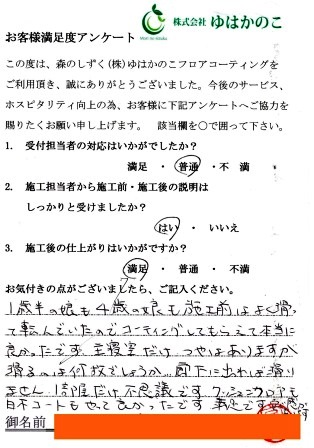 株式会社 ゆはかのこ
お客様満足度アンケート
この度は、森のしずく(株)ゆはかのこフロアコーティングを
ご利用頂き、誠にありがとうございました。今後のサービス、
ホスピタリティ向上の為、お客様に下記アンケートへご協力を
賜りたくお願い申し上げます。 該当欄を○で囲って下さい。
1. 受付担当者の対応はいかがでしたか？
満足 ・ 普通 ・ 不 満
2. 施工担当者から施工前・施工後の説明は
しっかりと受けましたか？
はい ・ いいえ
3. 施工後の仕上がりはいかがですか？
満足 ・ 普通 ・ 不満
お気付きの点がございましたら、ご記入ください。
1歳半の娘も4歳の娘も施工前はよく滑っ
て転んでいたのでコーティングしてもらえて本当に
良かったです 主寝室だけ つやはありますが
滑るのは何故でしょうか… 廊下に出れば滑り
ません 1部屋だけ不思議です クッションフロアも
白木コートもやって良かったです
御名前